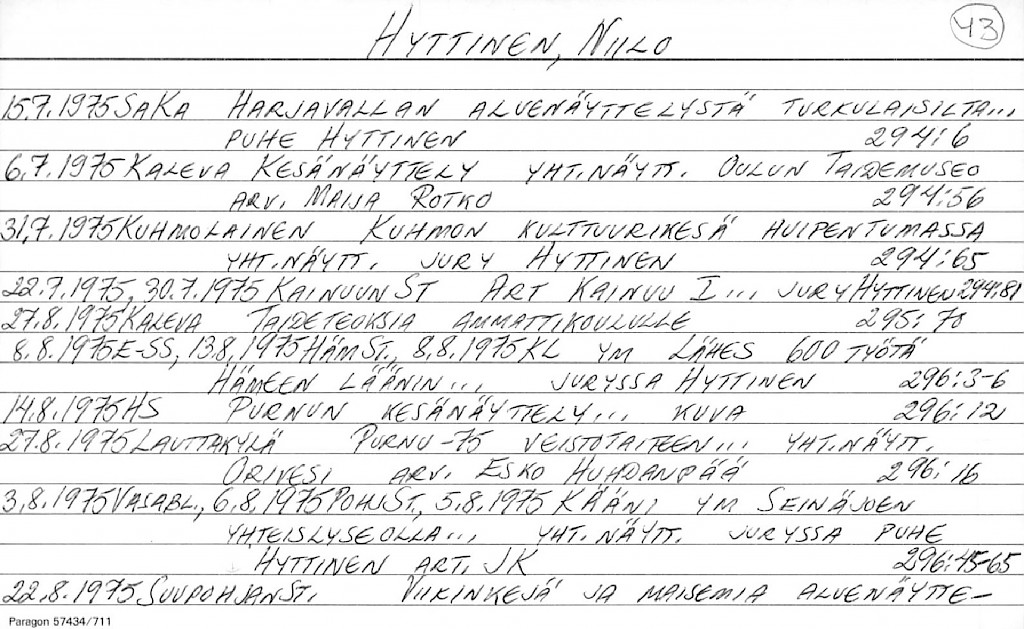 HYTTINEN, NIILO 43
15.7.1975 SAKA HARJAVALLAN ALUENÄYTTELYSTÄ TURKULAISILTA...
PUHE HYTTINEN 294:6
6.7.1975 KALEVA KESÄNÄYTTELY YHT.NÄYTT. OULUN TAIDEMUSEO
ARV. MAIJA ROTKO 294:56
31.7.1975 KUHMOLAINEN KUHMON KULTTUURIKESÄ HUIPENTUMASSA
YHT.NÄYTT. JURY HYTTINEN 294:65
22.7.1975, 30.7.1975 KAINUUN ST ART KAINUU I... JURY HYTTINEN 294:81
27.8.1975 KALEVA TAIDETEOKSIA AMMATTIKOULULLE 295:70
8.8.1975 E-SS, 13.8.1975 HÄMST., 8.8.1975 KL YM LÄHES 600 TYÖTÄ
HÄMEEN LÄÄNIN... JURYSSA HYTTINEN 296:3-6
14.8.1975 HS PURNUN KESÄNÄYTTELY... KUVA 296:12
27.8.1975 LAUTTAKYLÄ PURNU-75 VEISTOTAITEEN... YHT.NÄYTT.
ORIVESI ARV. ESKO HUHDANPÄÄ 296:16
3.8.1975 VASABL., 6.8.1975 POHJST., 5.8.1975 KÄÄNJ YM SEINÄJOEN
YHTEISLYSEOLLA... YHT.NÄYTT. JURYSSA PUHE
HYTTINEN ART. JK 296:45-65
22.8.1975 SUUPOHJANST. VIIKINKEJÄ JA MAISEMIA ALUENÄYTTE-
Paragon 57434/711